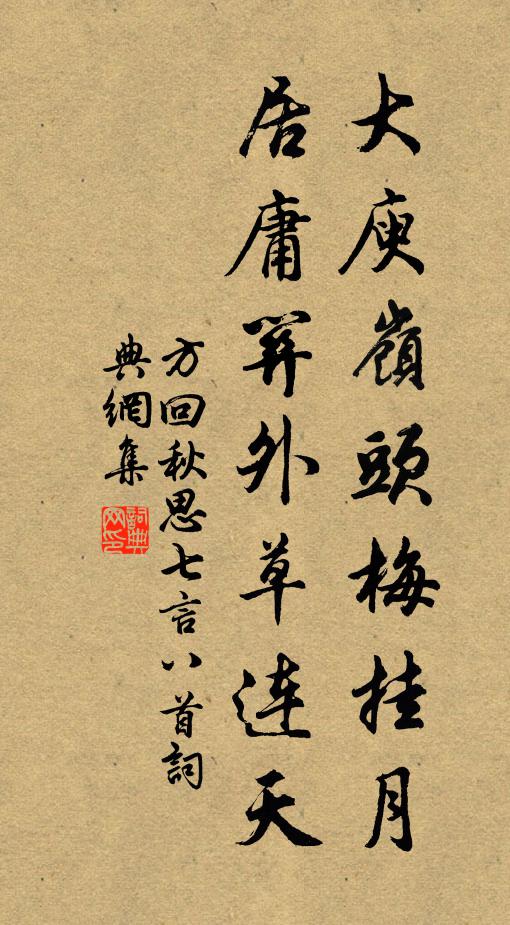 大庾嶺頭梅挂月
居庸關外草連天
方回秋思七言八首詞
典網集
詞典
网印